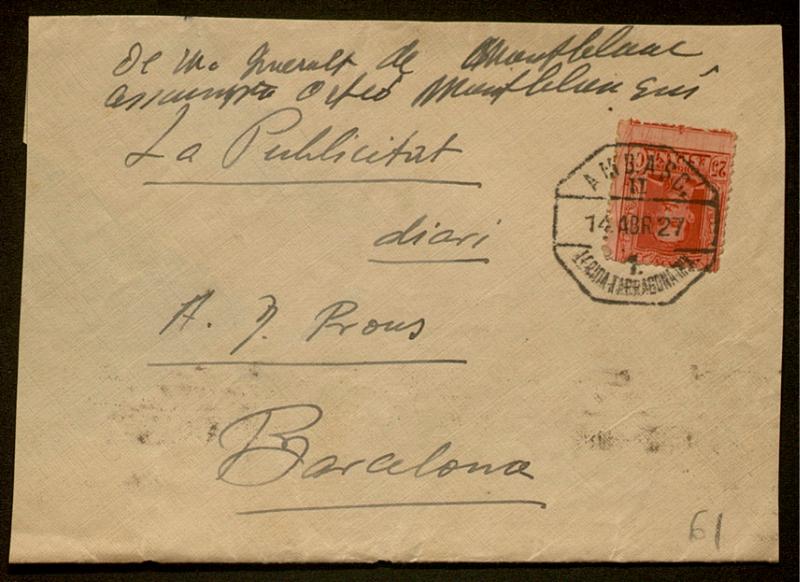 de Mª Queralt de Montblanc
assumpta Orfeó Montblanquí
La Publicitat
diari
A. J. Prous
Barcelona
AMB. ASC.
II
14 ABR 27
1.
LERIDA-TARRAGONA
25
61